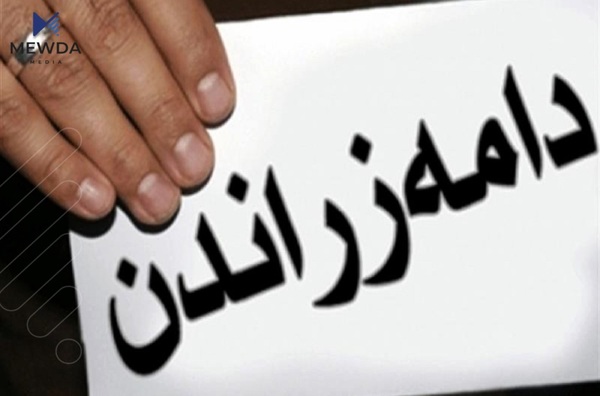 MEWDA
MEDIA
دامەزراندن